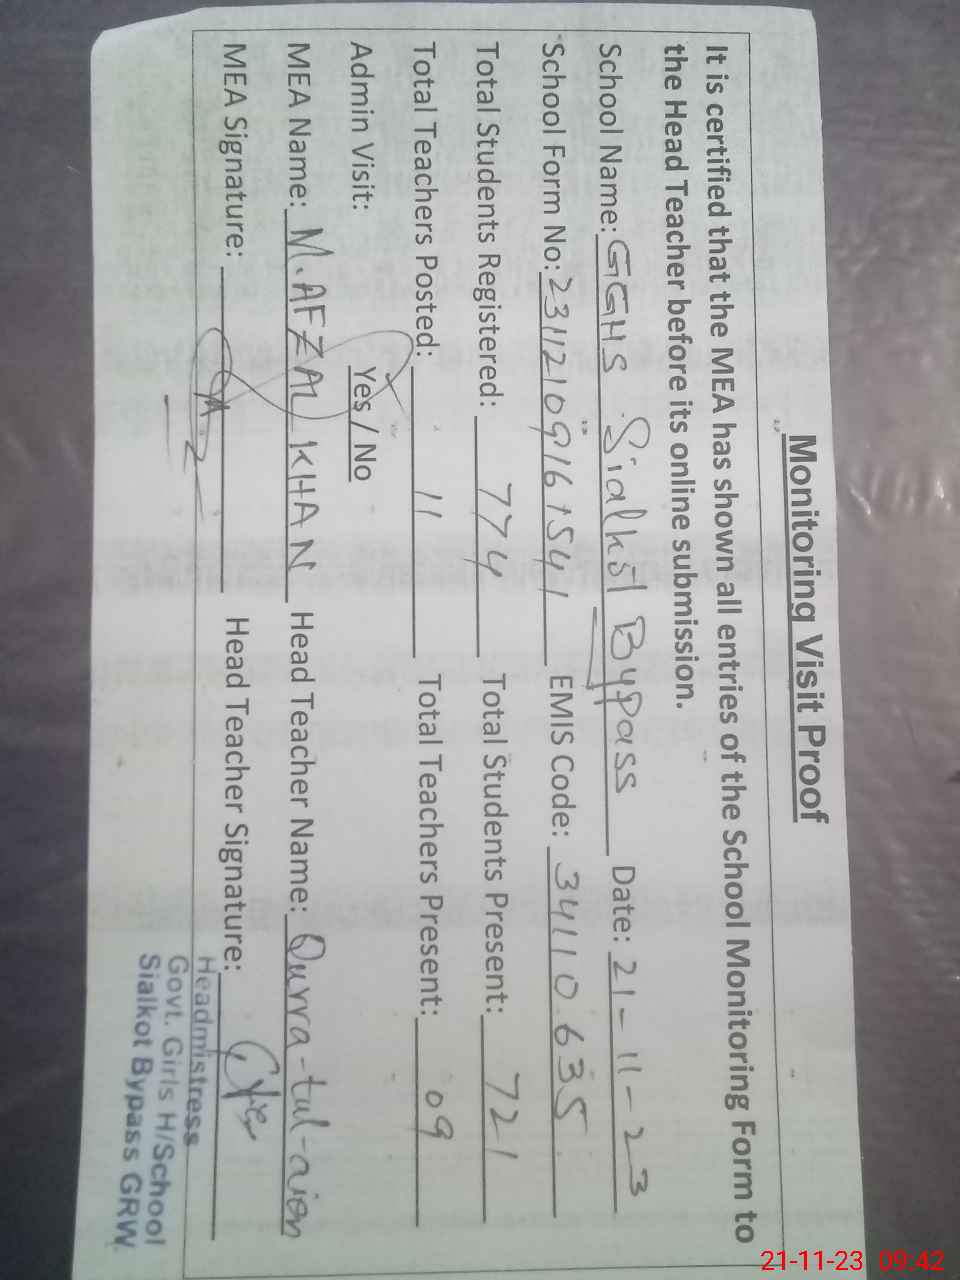 Monitoring Visit Proof
It is certified that the MEA has shown all entries of the School Monitoring Form to
the Head Teacher before its online submission.
School Name: GGHS Sialkot Bypass Date: 21-11-23
School Form No: EMIS Code: 34110635
Total Students Registered: 774 Total Students Present: 721
Total Teachers Posted: 11 Total Teachers Present: 09
Admin Visit: Yes / No
MEA Name: M.AFZAL KHAN Head Teacher Name: Qurra-tul-aion
MEA Signature: Head Teacher Signature:
Headmistress
Govt. Girls H/School
Sialkot Bypass GRW.
21-11-23 09:42